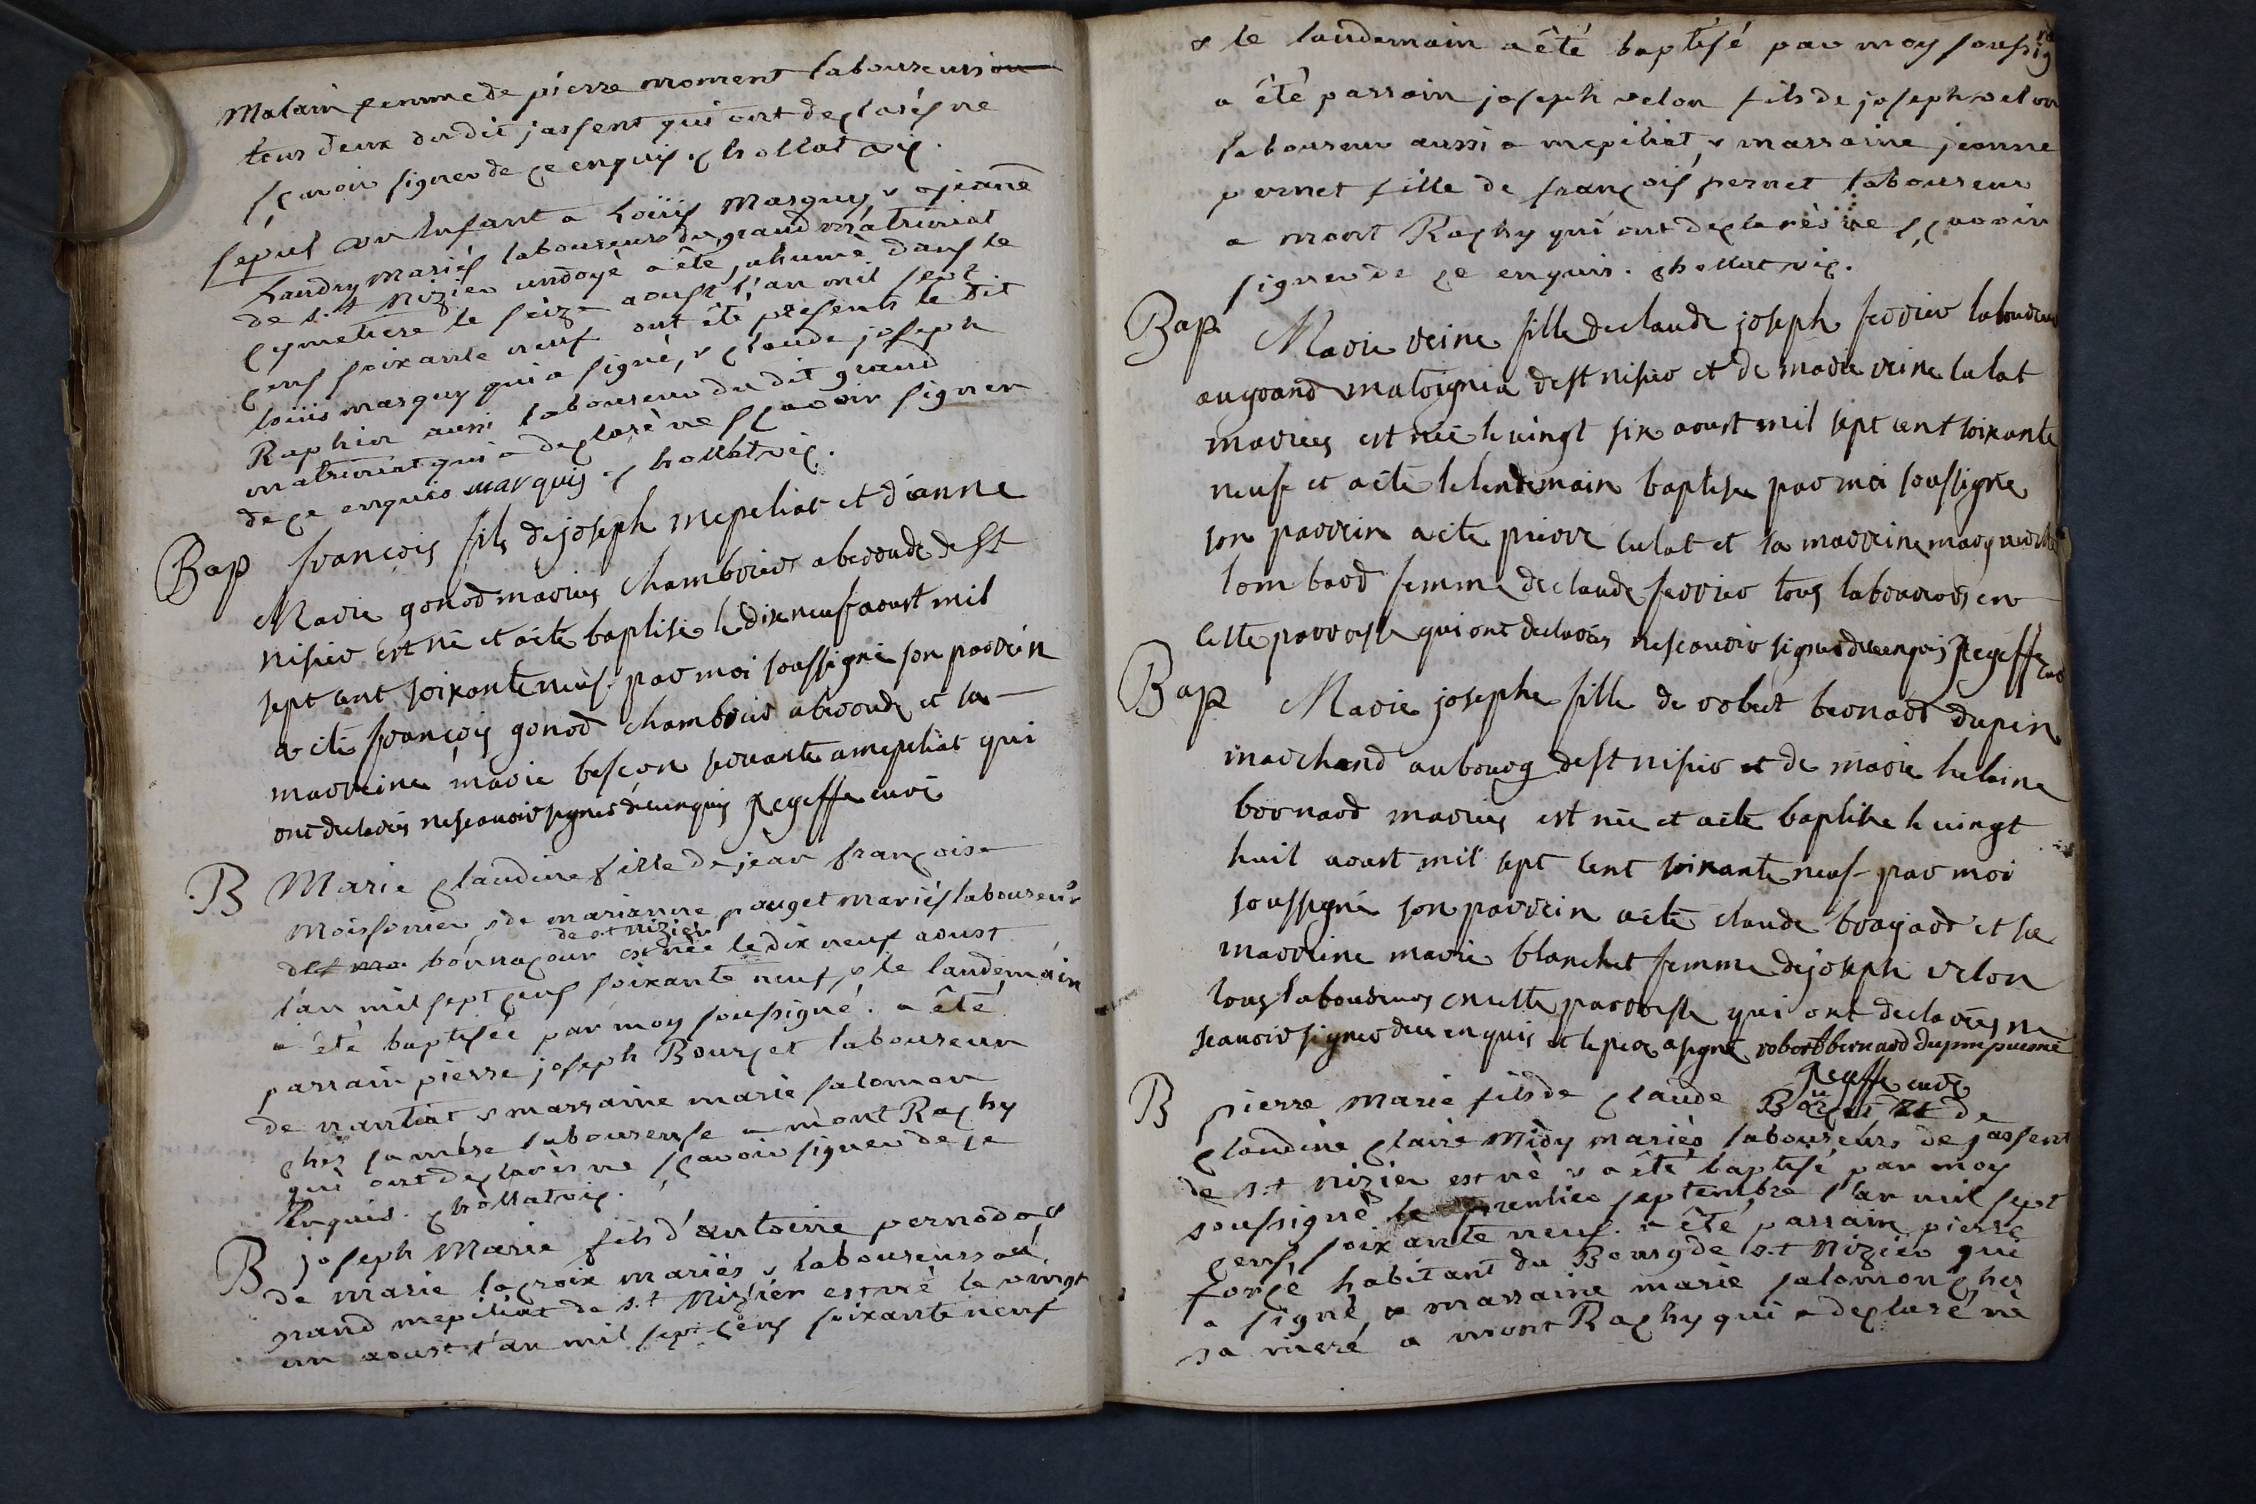 Malain femme de pierre moment laboureurs
tous deux du dit jassent qui ont declarés ne
sçavoir signer de ce enquis. chollat vic.
sepul un enfant a Loüis Marquis & a jeanne
Landry Mariés laboureurs du grand matriniat
de s.t Nizier undoyé a êté inhumé dans le
cymetiere le seize aoust l'an mil sept
cens soixante neuf ont été présents le dit
loüis marquy qui a signé, & claude joseph
Raphin aussi laboureur du dit grand
matriniat qui a declaré ne sçavoir signer
de ce enquis marquis. chollat vic.
Bap françois fils de joseph mepeliat et d'anne
Marie gonod mariés chambrier a beroude de St
nisier est né et a été baptisé le dix neuf aoust mil
sept cent soixante neuf par moi soussigné son parrein
a été françois gonod chambrier a beroude et sa
marreine marie bescon servante a mepeliat qui
ont declarés ne sçavoir signer de ce enquis Regeffe curé
B Marie claudine fille de jean françoise
Moissonier & de marianne pauget mariés laboureurs
de s.t nizier
bonnacour est née le dix neuf aoust
l'an mil sept cens soixante neuf, & le laudemain
a êté baptisée par moy soussigné. a êté
parrain pierre joseph Bourcet laboureur
de nantiat & marraine marie salomon
ches sa mere laboureuse a mont Rachy
qui ont declarés ne sçavoir signer de ce
Enquis. chollat vic.
B joseph Marie fils d'antoine pernodat
de marie lacroix mariés & laboureurs au
grand mepiliat de s.t Nizier est né le vingt
un aoust l'an mil sept cens soixante neuf
& le laudemain a êté baptisé par moy soussigné
a êté parrain joseph velon fils de joseph velon
laboureur aussi a mepiliat, & marraine jeanne
pernet fille de françois pernet laboureur
a mont Rachy qui ont declarés ne sçavoir
signer de ce enquis. chollat vic.
Bap Marie reine fille de claude joseph ferrier laboureur
au grand matrignia de st nisier et de marie reine culat
mariés est née le vingt six aoust mil sept cent soixante
neuf et a été le lendemain baptisée par moi soussigné
son parrein a été pierre culat et sa marreine marguerite
lombard femme de claude ferrier tous laboureurs en
cette parroisse qui ont declarés ne scavoir signer de ce enquis Regeffe curé
Bap Marie josephe fille de robert bernard dupin
marchand au bourg de st nisier et de marie helaine
bornard mariés est née et a été baptisée le vingt
huit aoust mil sept cent soixante neuf par moi
soussigné son parrein a été claude brayard et sa
marreine marie blanchet femme de joseph velon
tous laboureurs en cette parroisse qui ont declarés ne
scavoir signer de ce enquis et le pere a signé robert bernard dupin
Regeffe curé
B pierre Marie fils de claude et de
claudine claire Midy mariés laboureurs de jassent
de s.t nizier est né & a êté baptisé par moy
soussigné le premier septembre l'an mil sept
cens soixante neuf. a êté parrain pierre
forcé habitant du Bourg de s.t Nizier qui
a signé, & marraine marie salomon ches
sa meré a mont Rachy qui a declaré ne